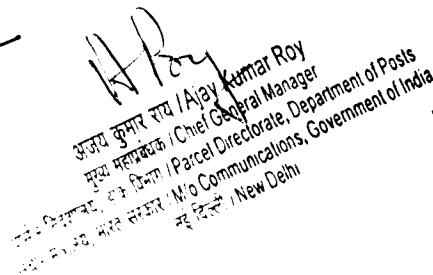 A Roy
अजय कुमार राय / Ajay Kumar Roy
मुख्य महाप्रबंधक / Chief General Manager
डाक विभाग / Parcel Directorate, Department of Posts
भारत सरकार / M/o Communications, Government of India
नई दिल्ली / New Delhi